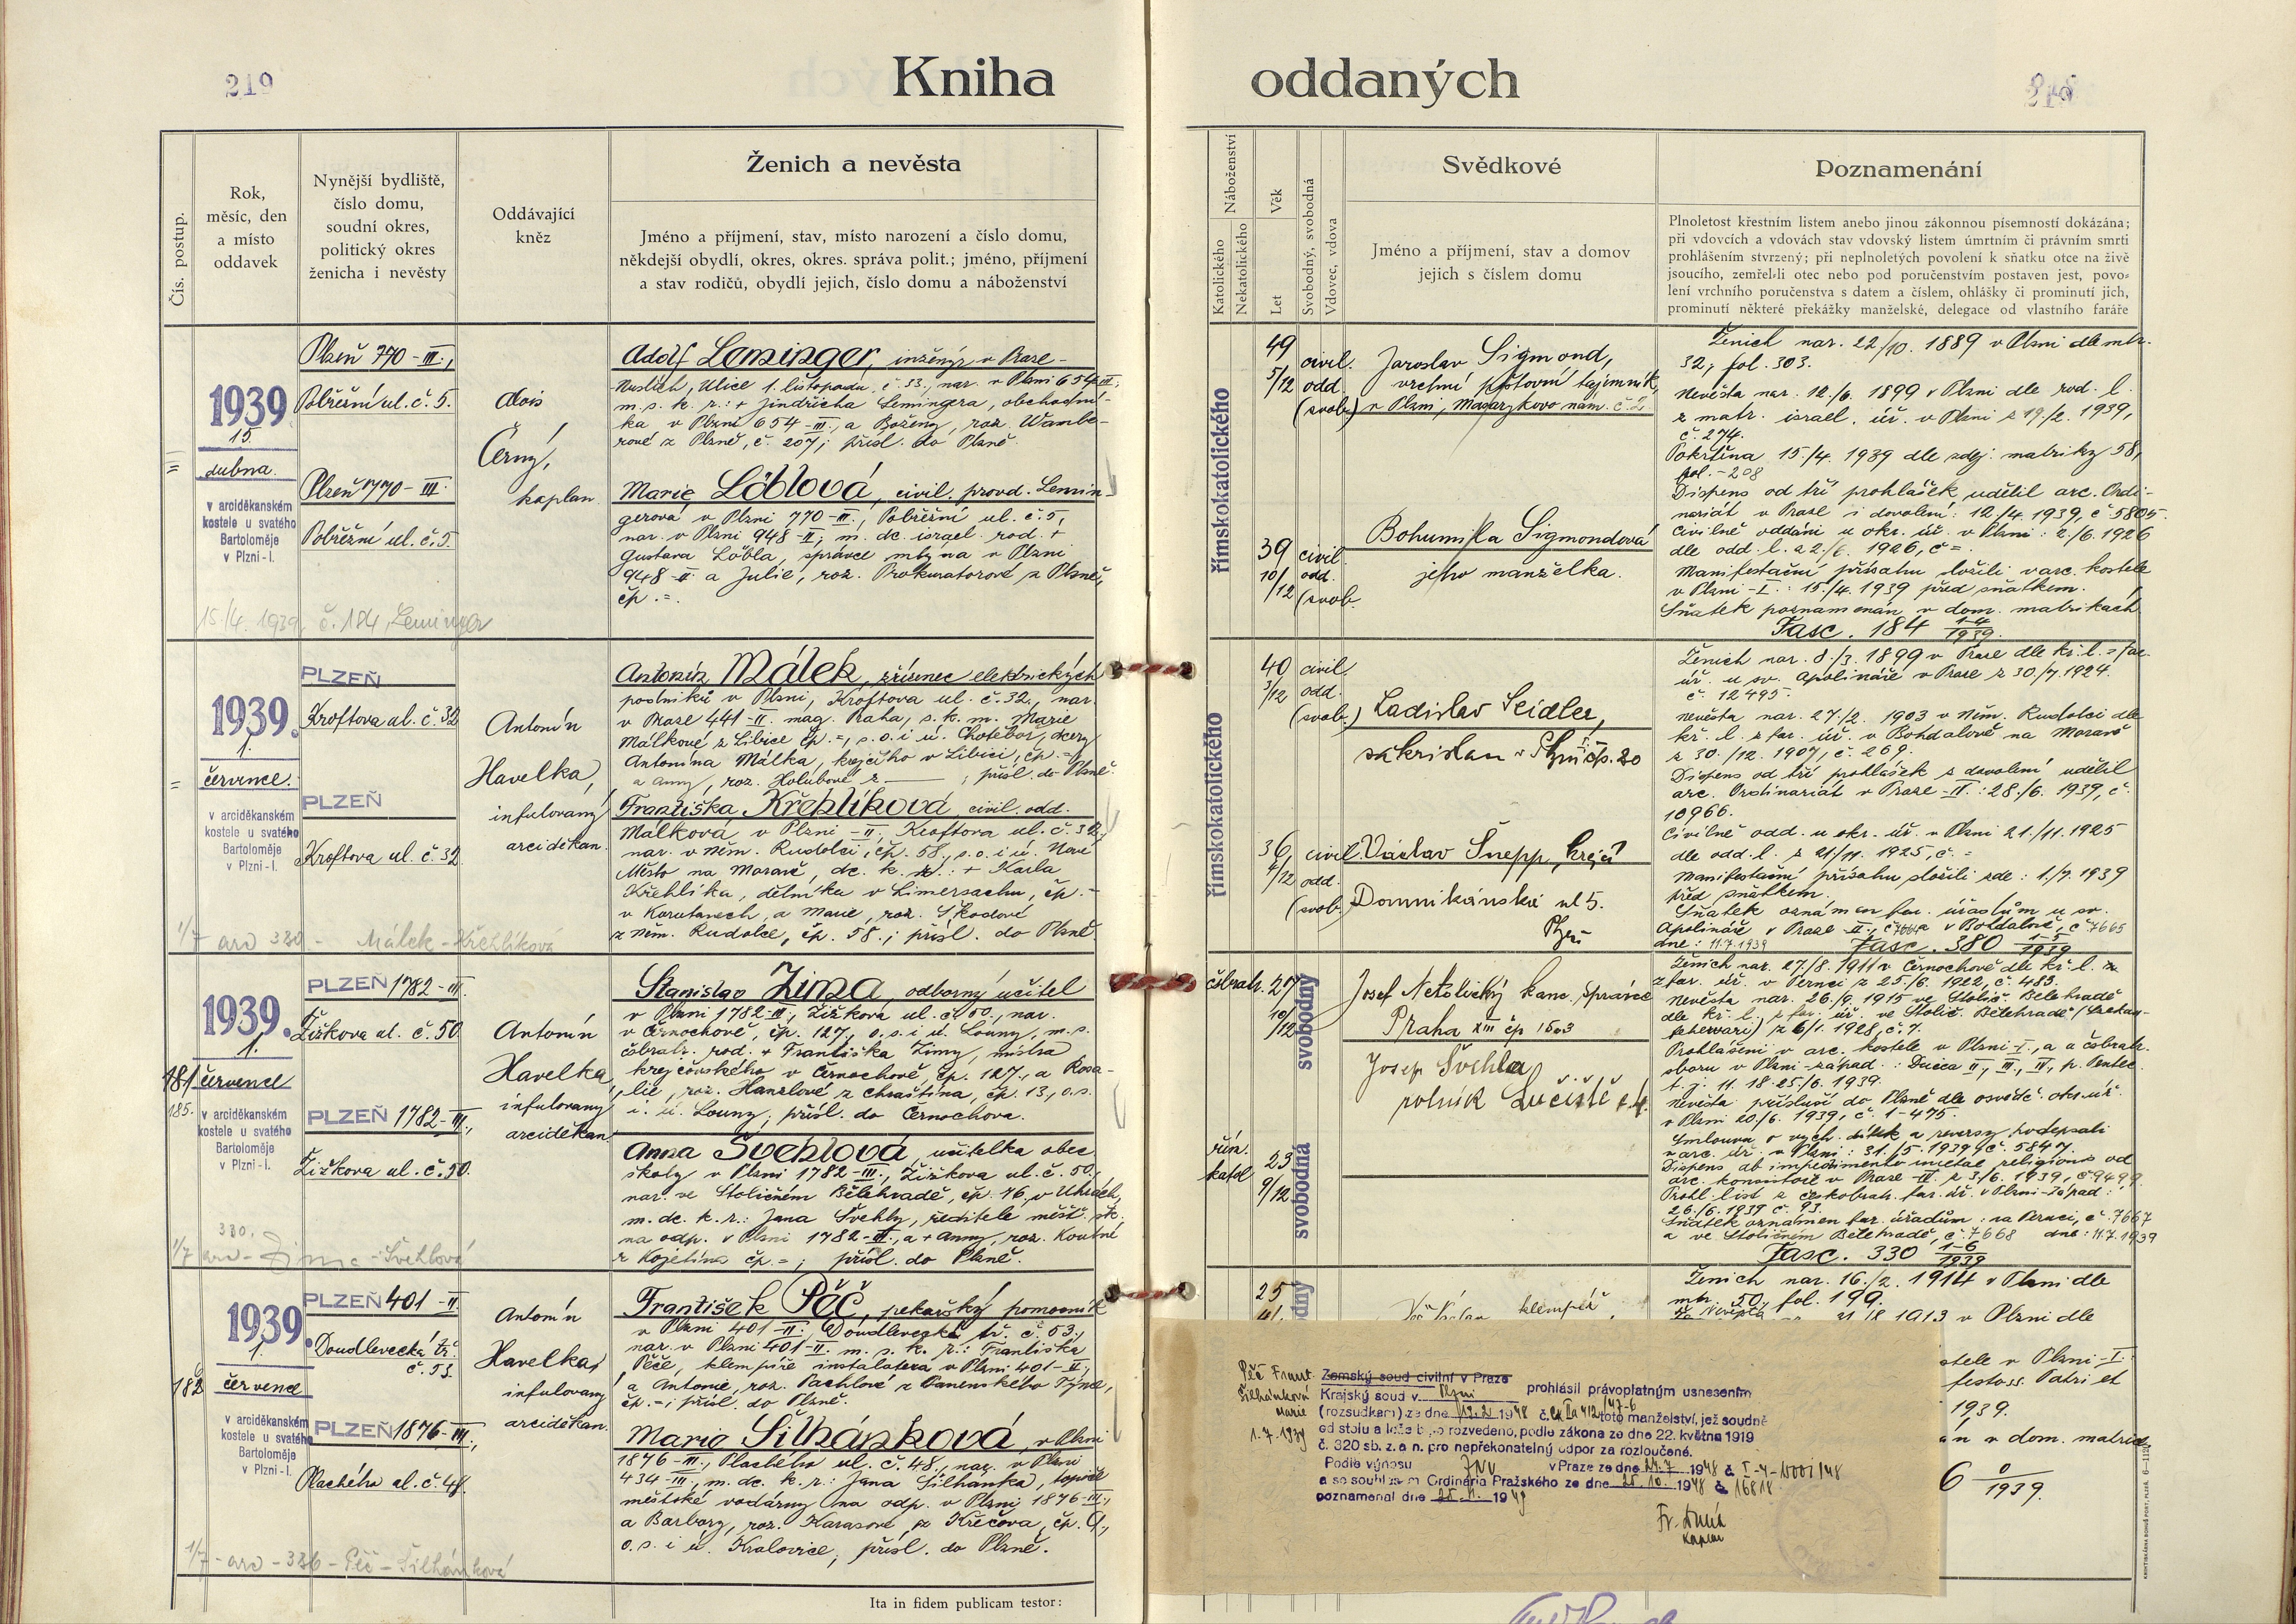 219
Kniha
oddaných
Čís. postup.
Rok,
měsíc, den
a místo
oddavek
Nynější bydliště,
číslo domu,
soudní okres,
politický okres
ženicha i nevěsty
Oddávající
kněz
Ženich a nevěsta
Jméno a příjmení, stav, místo narození a číslo domu,
někdejší obydlí, okres, okres. správa polit.; jméno, příjmení
a stav rodičů, obydlí jejich, číslo domu a náboženství
Náboženství
Katolického
Nekatolického
Věk
Let
Svobodný, svobodná
Vdovec, vdova
Svědkové
Jméno a příjmení, stav a domov
jejich s číslem domu
Poznamenání
Plnoletost křestním listem anebo jinou zákonnou písemností dokázána;
při vdovcích a vdovách stav vdovský listem úmrtním či právním smrti
prohlášením stvrzený; při neplnoletých povolení k sňatku otce na živě
jsoucího, zemřel-li otec nebo pod poručenstvím postaven jest, povo-
lení vrchního poručenstva s datem a číslem, ohlášky či prominutí jich,
prominutí některé překážky manželské, delegace od vlastního faráře
1939
15.
dubna.
v arciděkanském
kostele u svatého
Bartoloměje
v Plzni-I.
Plzeň 770-III.,
Pobřežní ul. č. 5.
Plzeň 770-III.
Pobřežní ul. č. 5.
Alois
Černý,
kaplan.
Adolf Leminger, inženýr v Praze-
Nuslích, Ulice 1. listopadu č. 33., nar. v Plzni 654-III.,
m. s. k. r.: + Jindřicha Lemingra, obchodní-
ka v Plzni 654-III., a Boženy, roz. Wambe-
rové z Plzně, č. 207; přísl. do Plzně.
Marie Löblová, civil. provd. Lemin-
gerová v Plzni 770-III., Pobřežní ul. č. 5,
nar. v Plzni 948-II., m. dc. israel. rod. +
Gustava Löbla, správce mlýna v Plzni
948-II. a Julie, roz. Prokuratorové z Plzně,
čp. =.
15/4. 1939. č. 184, Leminger
římskokatolického
49
5/12
civil.
odd.
(svob.)
39
10/12
civil.
odd.
(svob.
Jaroslav Sigmond,
vrchní poštovní tajemník,
v Plzni, Masarykovo nám. č. 2.
Bohumila Sigmondová
jeho manželka.
Ženich nar. 22/10. 1889 v Plzni dle mtr.
32, fol. 303.
Nevěsta nar. 12./6. 1899 v Plzni dle rod. l.
z matr. israel. úř. v Plzni z 19./2. 1939,
č. 274.
Pokřtěna 15./4. 1939 dle zdej. matriky 58,
fol. - 208
Dispens od tří prohlášek udělil arc. Ordi-
nariát v Praze s dovolení: 12./4. 1939, č. 5805.
Civilně oddáni u okr. úř. v Plzni: 2./6. 1926
dle odd. l. z 2./6. 1926, č =.
Manifestační přísahu složili v arc. kostele
v Plzni-I.: 15./4. 1939 před sňatkem.
Sňatek poznamenán v dom. matrikách
Fasc. 184 1-4/1939.
1939.
1.
července.
v arciděkanském
kostele u svatého
Bartoloměje
v Plzni-I.
PLZEŇ
Kroftova ul. č. 32
PLZEŇ
Kroftova ul. č. 32
Antonín
Havelka,
infulovaný
arciděkan.
Antonín Málek, zřízenec elektrických
podniků v Plzni, Kroftova ul. č. 32., nar.
v Praze 441-II. mag. Praha, s. k. m. Marie
Málkové z Libice čp. =, s. o. i ú. Chotěboř, dcery
Antonína Málka, krejčího v Libici, čp. =,
a Anny, roz. Holubové z ——; přísl. do Plzně.
Františka Křehlíková civil. odd.
Málková v Plzni-II., Kroftova ul. č. 32,
nar. v Něm. Rudolci, čp. 58., s. o. i ú. Nové
Město na Moravě, dc. k. r.: + Karla
Křehlíka, dělníka v Limersachu, čp. =
v Korutanech, a Marie, roz. Škodové
z Něm. Rudolce, čp. 58.; přísl. do Plzně.
1/7 arc 380 - Málek - Křehlíková
římskokatolického
40
3/12
civil.
odd.
(svob.)
36,
4/12
civil.
odd.
(svob.
Ladislav Seidler,
sakristan v Plzni čp. 20
Václav Šnepp, krejčí
Dominikánská ul 5.
Plzeň
Ženich nar. 8./3. 1899 v Praze dle kř. l. z far.
úř. u sv. Apolináře v Praze z 30./7. 1924.
č. 12495.
Nevěsta nar. 27./2. 1903 v Něm. Rudolci dle
kř. l. z far. úř. v Bohdalově na Moravě
z 30./12. 1907, č. 269.
Dispens od tří prohlášek s dovolení udělil
arc. Ordinariát v Praze-IV.: 28./6. 1939, č.
10966.
Civilně odd. u okr. úř. v Plzni 21./11. 1925
dle odd. l. z 21/11. 1925, č. =
Manifestační přísahu složili zde: 1./7. 1939
před sňatkem.
Sňatek oznámen far. úřadům u sv.
Apolináře v Praze-II., č. 7664 a v Bohdalově, č. 7665
dne: 11.7.1939 Fasc. 380 1-5/1939
1939.
1.
181 července
185.
v arciděkanském
kostele u svatého
Bartoloměje
v Plzni-I.
PLZEŇ 1782-III.
Žižkova ul. č. 50.
PLZEŇ 1782-III.,
Žižkova ul. č. 50.
Antonín
Havelka,
infulovaný
arciděkan.
Stanislav Zima, odborný učitel
v Plzni 1782-III., Žižkova ul. č. 50., nar.
v Černochově, čp. 127, o. s. i ú. Louny, m. s.
čsbratr. rod. + Františka Zimy, mistra
krejčovského v Černochově čp. 127., a Rosa-
lie, roz. Hanzlové z Chraštína, čp. 13, o. s.
i. ú. Louny, přísl. do Černochova.
Anna Švehlová, učitelka obec.
školy v Plzni 1782-III., Žižkova ul. č. 50,
nar. ve Stoličném Bělehradě, čp. 76, v Uhrách,
m. dc. k. r.: Jana Švehly, ředitele měšť. šk.
na odp. v Plzni 1782-III., a + Anny, roz. Koutné
z Kojetína čp. =; přísl. do Plzně.
330.
1/7 arc - Zima - Švehlová
čsbratr.
27
10/12
svobodný
řím.
katol
23
9/12
svobodná
Josef Netolický kanc. správce
Praha XIII čp 1503
Josef Švehla
rolník
Ženich nar. 27./8. 1911 v Černochově dle kř. l.
z far. úř. v Peruci z 25./6. 1922, č. 485.
Nevěsta nar. 26./9. 1915 ve Stolič. Bělehradě
dle kř. l. z far. úř. ve Stolič. Bělehradě
z 6/1. 1928, č. 7.
Prohlášeni v arc. kostele v Plzni-I., a v čsbratr.
sboru v Plzni-západ.: Dnica II., III., IV. p. Pentec.
t. j. 11. 18. 25./6. 1939.
Nevěsta přísluší do Plzně dle osvědč. obec. úř.
v Plzni 20./6. 1939, č. 1-475.
Smlouvu o vých. dítek a reversy podepsali
v arc. úř. v Plzni: 31./5. 1939, č. 5847.
Dispens ab impedimento mixtae religionis od
arc. konsistoře v Praze-IV. z 3./6. 1939, č. 9499.
Prohl. list z českobratr. far. úř. v Plzni-Západ:
26./6. 1939 č. 93.
Sňatek oznámen far. úřadům: na Peruci, č. 7667
a ve Stoličném Bělehradě, č. 7668 dne: 11.7.1939
Fasc. 330 1-6/1939
1939.
1.
182 červenec
v arciděkanském
kostele u svatého
Bartoloměje
v Plzni-I.
PLZEŇ 401-II.
Doudlevecká tř.
č. 53.
PLZEŇ 1876-III.,
Plachého ul. č. 48.
Antonín
Havelka,
infulovaný
arciděkan.
František Péč, pekařský pomocník
v Plzni 401-II., Doudlevecká tř. č. 53.,
nar. v Plzni 401-II. m. s. k. r.: Františka
Péče, klempíře instalatéra v Plzni 401-II.,
a Antonie, roz. Pachlové z Panenského Týnce,
čp. =; přísl. do Plzně.
Marie Šilhánková, v Plzni
1876-III., Plachého ul. č. 48., nar. v Plzni
434-III., m. dc. k. r.: Jana Šilhánka, topiče
městské vodárny na odp. v Plzni 1876-III.,
a Barbory, roz. Karasové z Křečova, čp. 9.,
o. s. i ú. Kralovice, přísl. do Plzně.
1/7 - arc - 336 - Péč - Šilhánková
25
klempíř
Ženich nar. 16./2. 1914 v Plzni dle
mtr. 50, fol. 199.
1913 v Plzni dle
stele v Plzni-I.
festo ss. Petri et
1939.
án v dom. matrice
6 0/1939.
Péč Frant.
Šilhánková
Marie
1.7.1939
Zemský soud civilní v Praze
Krajský soud v Plzni prohlásil právoplatným usnesením
(rozsudkem) ze dne 12.2. 1948 č. Ck IIa 412/47-6 toto manželství, jež soudně
od stolu a lože bylo rozvedeno, podle zákona ze dne 22. května 1919
č. 320 sb. z. a n. pro nepřekonatelný odpor za rozloučené.
Podle výnosu ZNV v Praze ze dne 24.7 1948 č. I-4-
a se souhlasem Ordinária Pražského ze dne 25.10. 1948 č. 16818
poznamenal dne 1949
kaplan
Ita in fidem publicam testor: